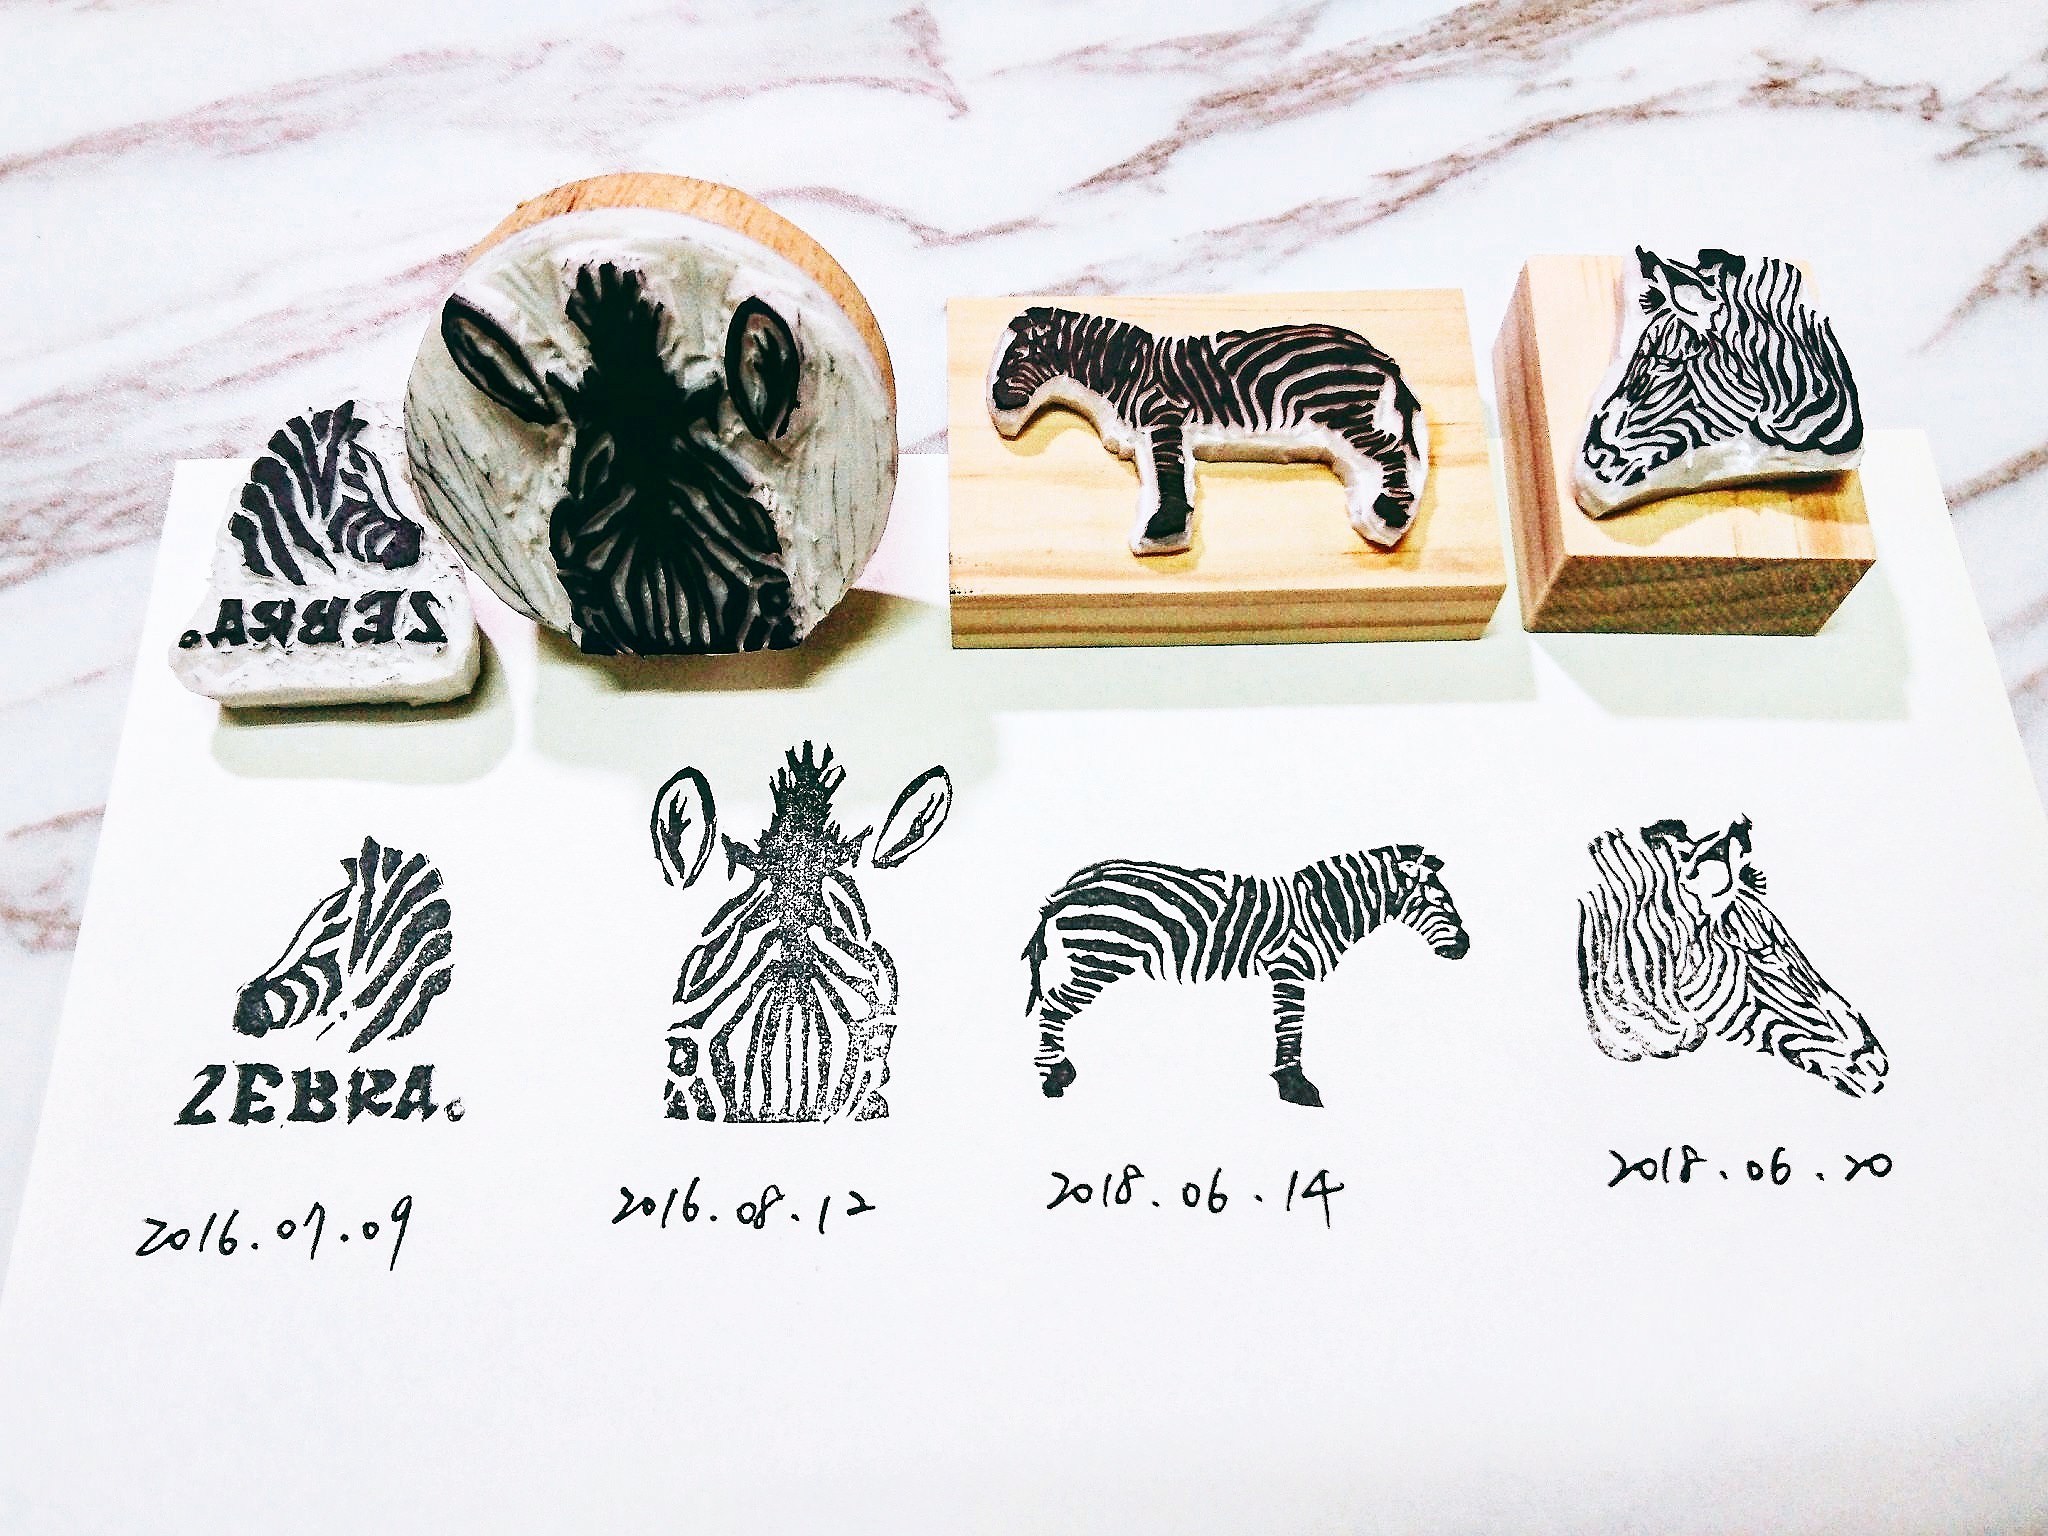 ZEBRA.
ZEBRA.
2016.07.09
2016.08.12
2018.06.14
2018.06.20